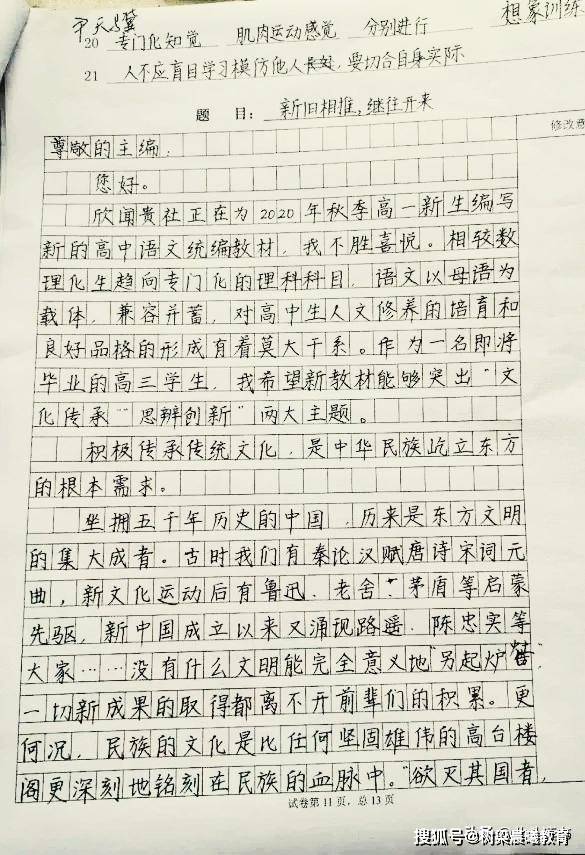 尹天翼
想象训练
20 专门化知觉 肌肉运动感觉 分别进行
21 人不应盲目学习模仿他人长处,要切合自身实际
题 目: 新旧相推,继往开来
修改意
尊敬的主编:
您好。
欣闻贵社正在为2020年秋季高一新生编写
新的高中语文统编教材,我不胜喜悦。相较数
理化生趋向专门化的理科科目,语文以母语为
载体,兼容并蓄,对高中生人文修养的培育和
良好品格的形成有着莫大干系。作为一名即将
毕业的高三学生,我希望新教材能够突出“文
化传承”“思辨创新”两大主题。
积极传承传统文化,是中华民族屹立东方
的根本需求。
坐拥五千年历史的中国,历来是东方文明
的集大成者。古时我们有秦论汉赋唐诗宋词元
曲,新文化运动后有鲁迅、老舍、茅盾等启蒙
先驱,新中国成立以来又涌现路遥、陈忠实等
大家……没有什么文明能完全意义地“另起炉灶”,
一切新成果的取得都离不开前辈们的积累。更
何况,民族的文化是比任何坚固雄伟的高台楼
阁更深刻地铭刻在民族的血脉中。“欲灭其国者,
试卷第11页,总13页
搜狐号@树梁晨曦教育